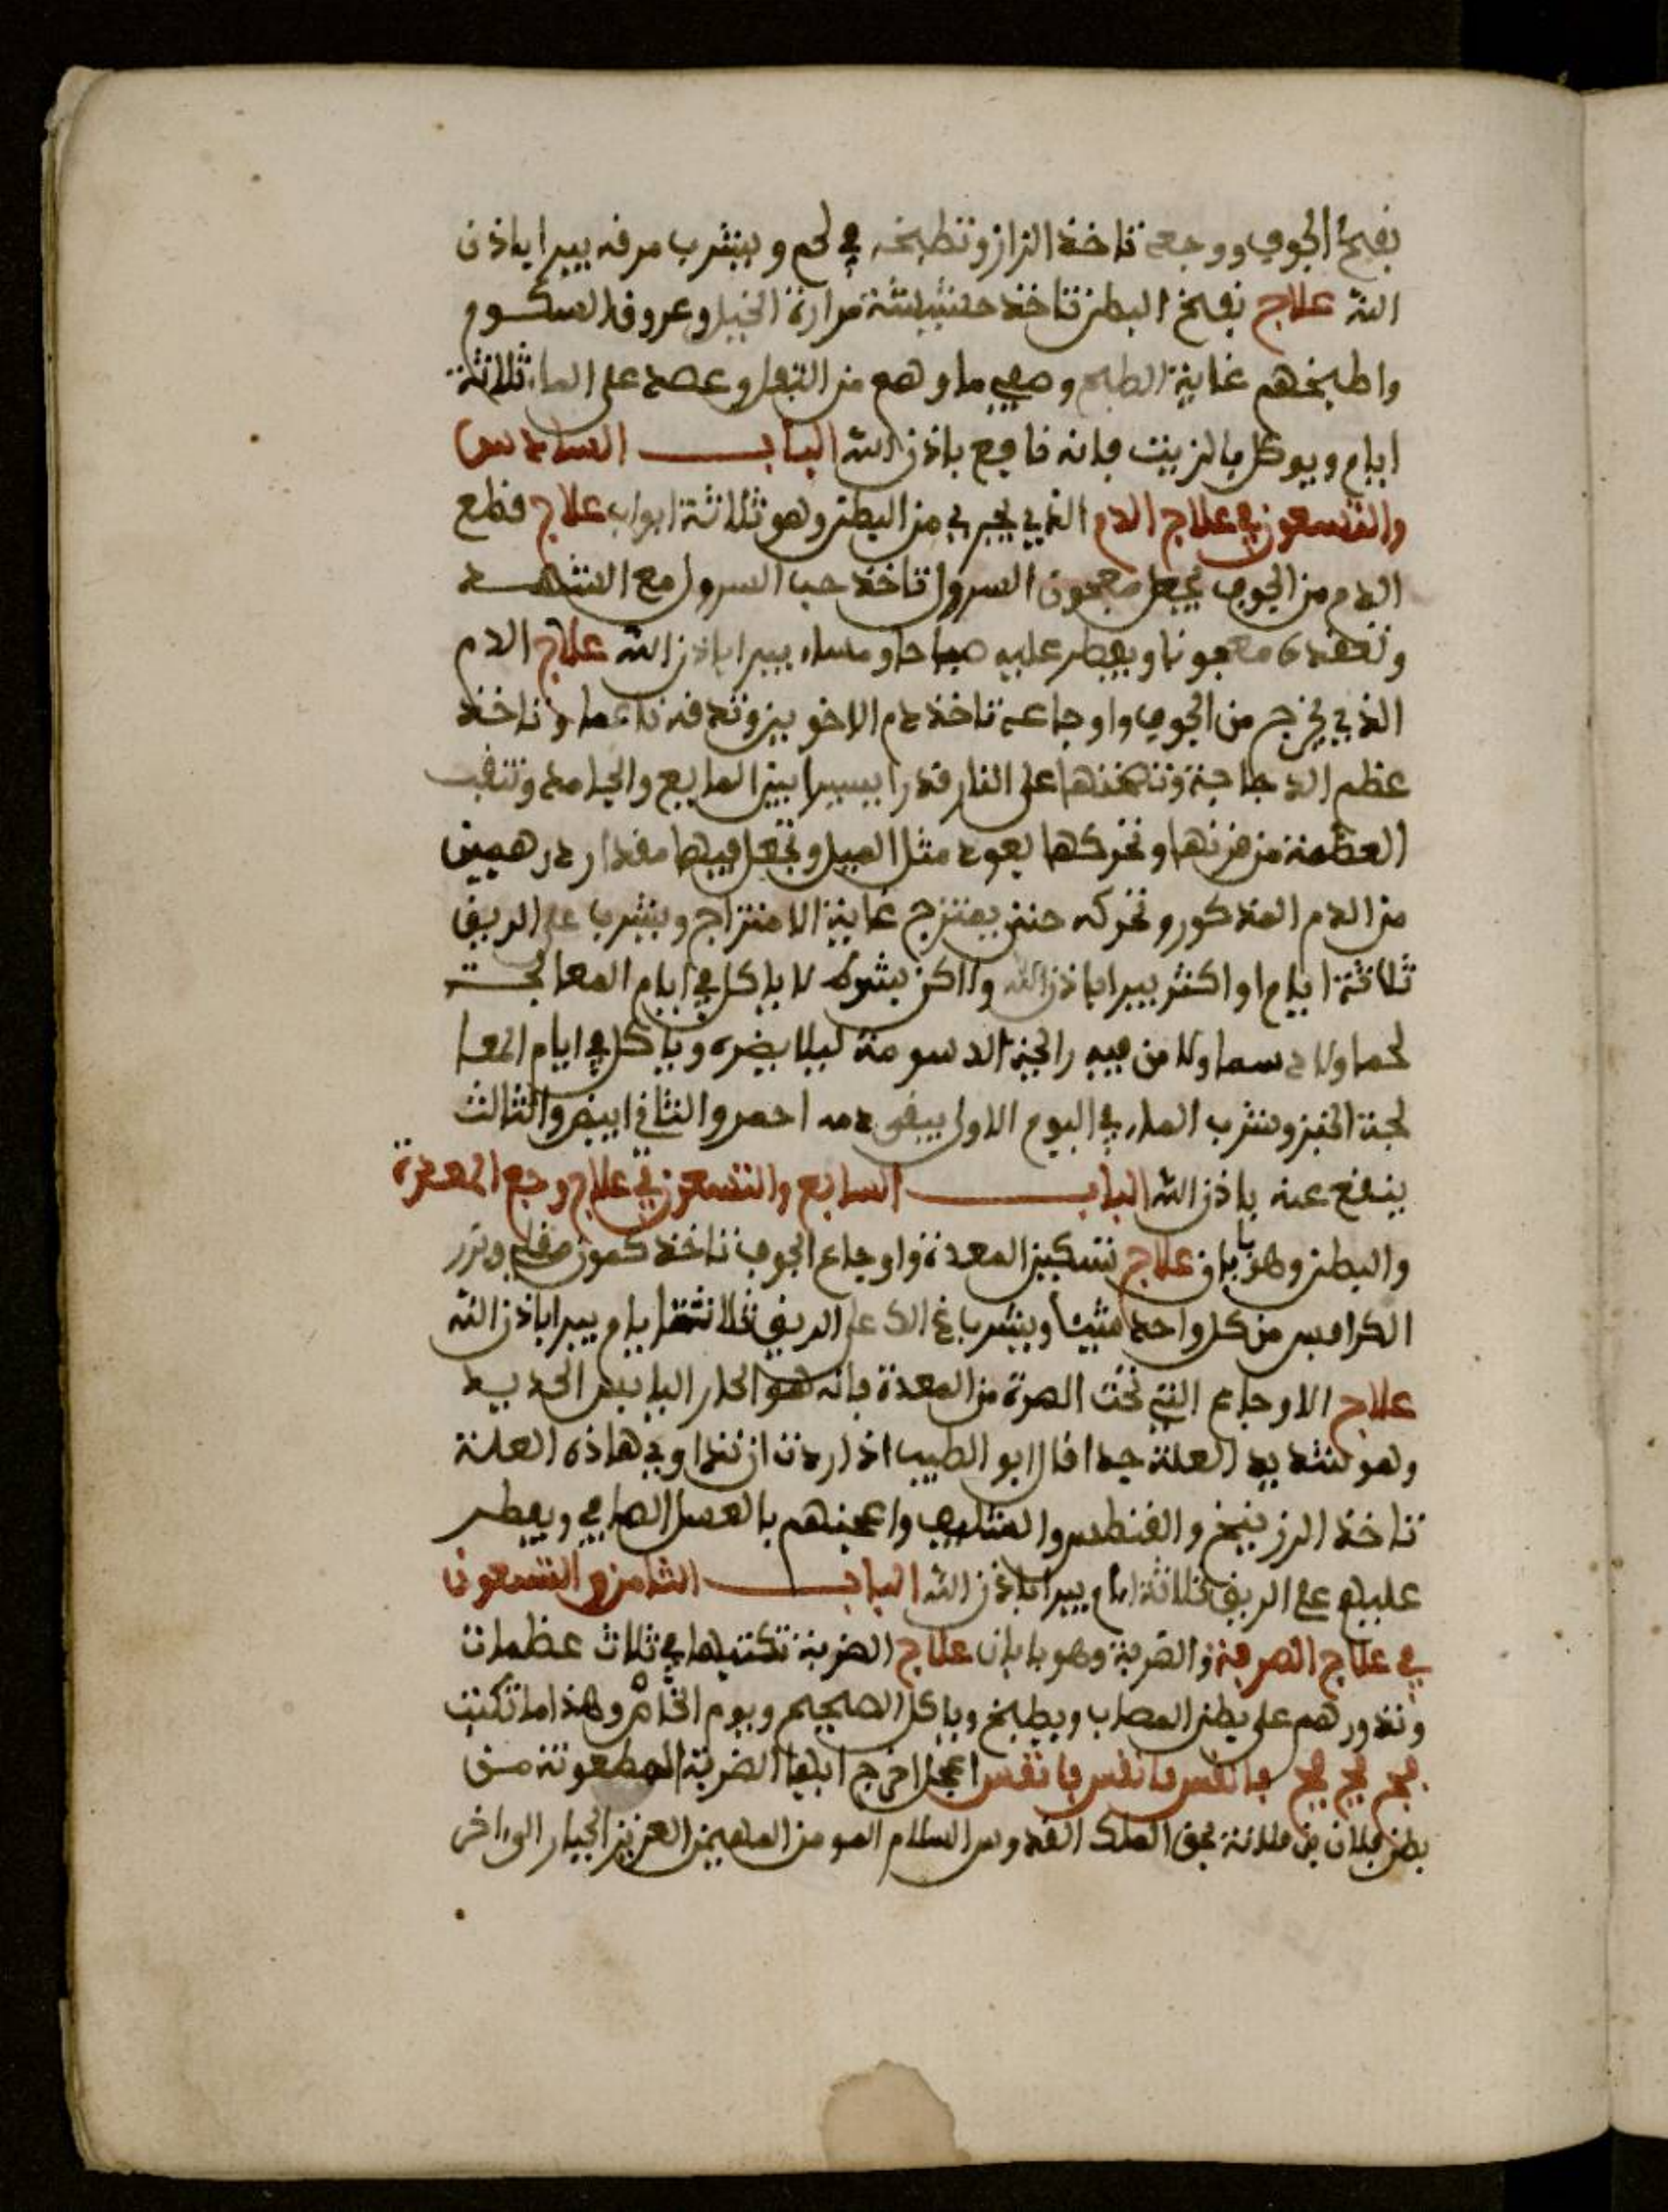 نفخ الجوف ووجعه تاخذ الزاز وتطبخه في لحم ويشرب مرقه يبرا باذن
الله علاج نفخ البطن تاخذ حشيشة مرارة الخيل وعروق السكوم
واطبخهم غاية الطبخ وصفي ماوهم من التفل وعصد على الماء ثلاثة
ايام ويوكل بالزيت فانه نافع باذن الله الباب السادس
والتسعون في علاج الدم الذي يجري من البطن وهو ثلاثة ابواب علاج قطع
الدم من الجوف يجعل معجون السرول تاخذ حب السرول مع الشهد
وتعقده معجونا ويفطر عليه صباحا ومساء يبرا باذن الله علاج الدم
الذي يخرج من الجوف واوجاعه تاخذ دم الاخوين وتدقه ناعما وتاخذ
عظم الدجاجة وتسخنها على النار قدرا يسيرا بين المايع والجامد وتثقب
العظمة من قرنها وتحركها بعود مثل الميل وتجعل فيها مقدار درهمين
من الدم المذكور وتحركه حتى يمتزج غاية الامتزاج ويشرب على الريق
ثلاثة ايام او اكثر يبرا باذن الله ولاكن بشرط لا ياكل في ايام المعالجة
لحما ولا دسما ولا من فيه رايحة الدسومة ليلا يضره وياكل في ايام المعا
لجة الخبز وشرب الماء في اليوم الاول يبقى دمه احمر والثاني ابيض والثالث
ينقطع عنه باذن الله الباب السابع والتسعون في علاج وجع المعدة
والبطن وهو بابان علاج تسكين المعدة واوجاع الجوف تاخذ كمون مقلي وزر
الكرافس من كل واحد مثيث ويشرب باغ الك على الريق ثلاثة ايام يبرا باذن الله
علاج الاوجاع التي تحت الصرة من المعدة فانه هو الحار اليابس الحديد
وهو شديد العلة جدا قال ابو الطيب اذا اردت ان تداوي هاذه العلة
تاخذ الرزينخ والقنطس والمثليث واعجنهم بالعسل الصافي ويفطر
عليهم على الريق ثلاثة ايام يبرا باذن الله الباب الثامن والتسعون
في علاج الصرفة والضربة وهو بابان علاج الضربة تكتبها في ثلاث عظمات
وتدورهم على بطن المصاب ويطبخ وياكل الصحيح ويوم الخامر وهذا ما تكتب
فج فج فج يانفس يانفس يانفس اعجل اخرج ايها الضربة المطعونة من
بطن فلان بن فلانة بحق الملك القدوس السلام المومن المهيمن العزيز الجبار الى اخر